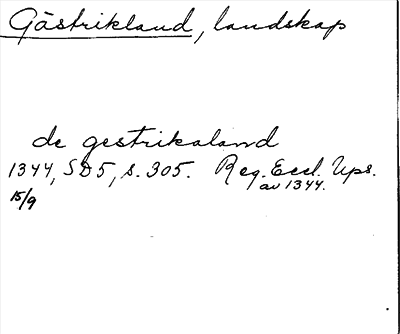 Gästrikland, landskap
de gestrikaland
1344, SD5, s. 305. Reg. Eccl. Ups.
av 1344.
15/9